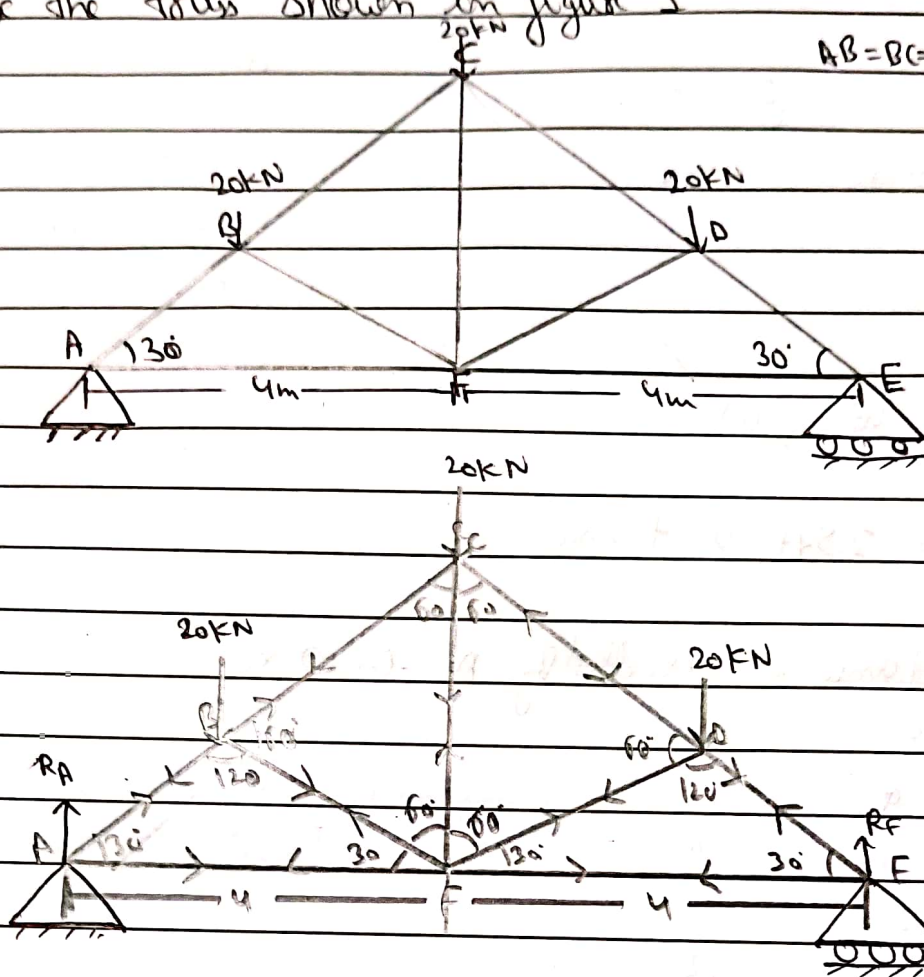 the truss shown in figure
20KN
C
AB=BC=
20KN
20KN
B
D
A
30°
30°
E
4m
F
4m
20KN
C
60 60
20KN
20KN
B
60°
60°
D
120
120
RA
60° 60°
RF
A
30°
30
30°
30°
E
4
F
4